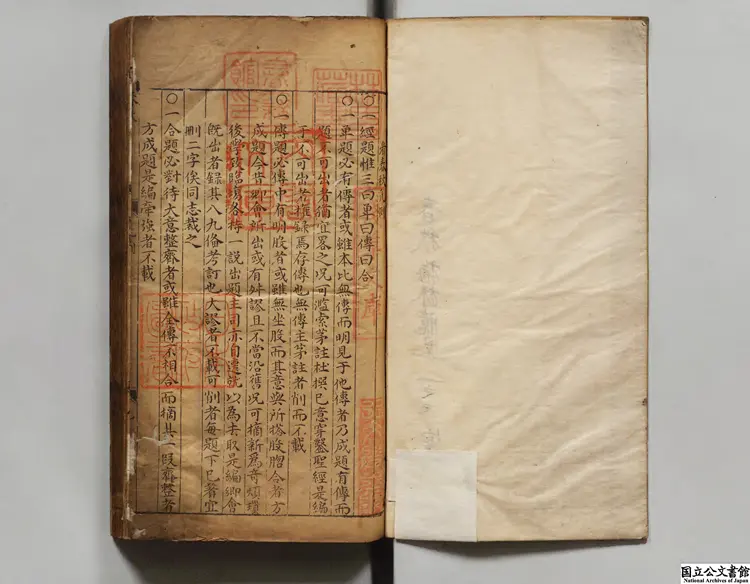 ○一經題惟三曰單曰傳曰合
○一單題必有傳者或雖本比無傳而明見于他傳者乃成題有傳而
題不可出者猶宜畧之况可濫索茅註杜撰已意穿鑿聖經是編
于不可出者錄焉存傳也無傳主茅註者削而不載
○一傳題必傳中有明股者或雖無坐股而其意與所搭股脗合者方
成題今昔鄉會所出或有舛謬且不當沿舊况可摘新爲奇煩
後學致臨場各持一說出題主司亦自遣就以為去取是編鄉會
既出者錄其八九備考訂也大謬者不載可削者每題下已著宜
刪二字俟同志裁之
○一合題必對待大意整齊者或雖全傳不相合而摘其一段齊整者
方成題是編牽強者不載
国立公文書館
National Archives of Japan